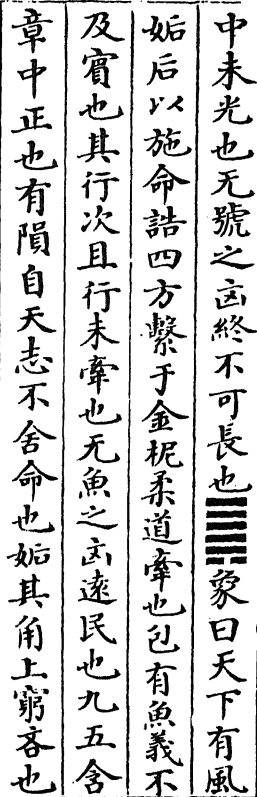 中未光也无號之凶終不可長也䷫象曰天下有風
姤后以施命誥四方繫于金柅柔道牽也包有魚義不
及賔也其行次且行未牽也无魚之凶逺民也九五含
章中正也有隕自天志不舍命也姤其角上窮吝也